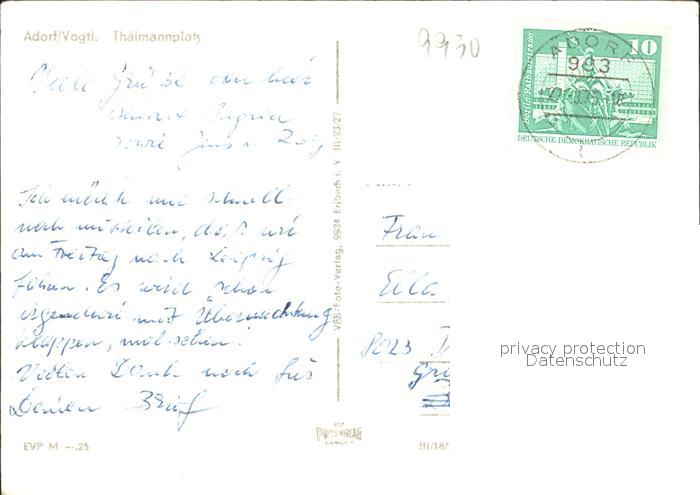 Adorf/Vogtl. Thälmannplatz
9930
Viele Grüße von hier
sendet Ingrid
sowie Jens u.
Ich möchte nur schnell
noch mitteilen, daß wir
am Freitag nach Leipzig
fahren. Es wird schon
irgendwie mit Übernachtung
klappen, mal sehen.
Vielen Dank noch für
Deinen Brief
EVP M —.25
VEB-Foto-Verlag, 9934 Erlbach i. V III/23/27
III/18/
ADORF
993
10
Berlin Rathausstraße
DEUTSCHE DEMOKRATISCHE REPUBLIK
Frau
Ella
8023
privacy protection
Datenschutz